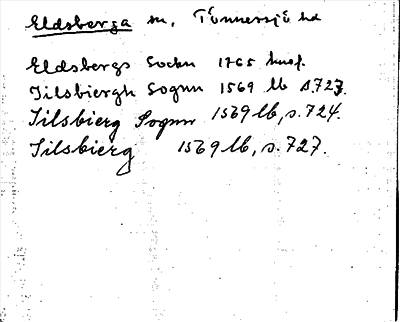 Eldsberga sn, Tönnersjö hd
Eldsbergs Sockn 1765 husf.
Jilsbiergh Sognn 1569 lb s.723.
Jilsbierg Sognn 1569 lb, s.724.
Jilsbierg 1569 lb, s.727.